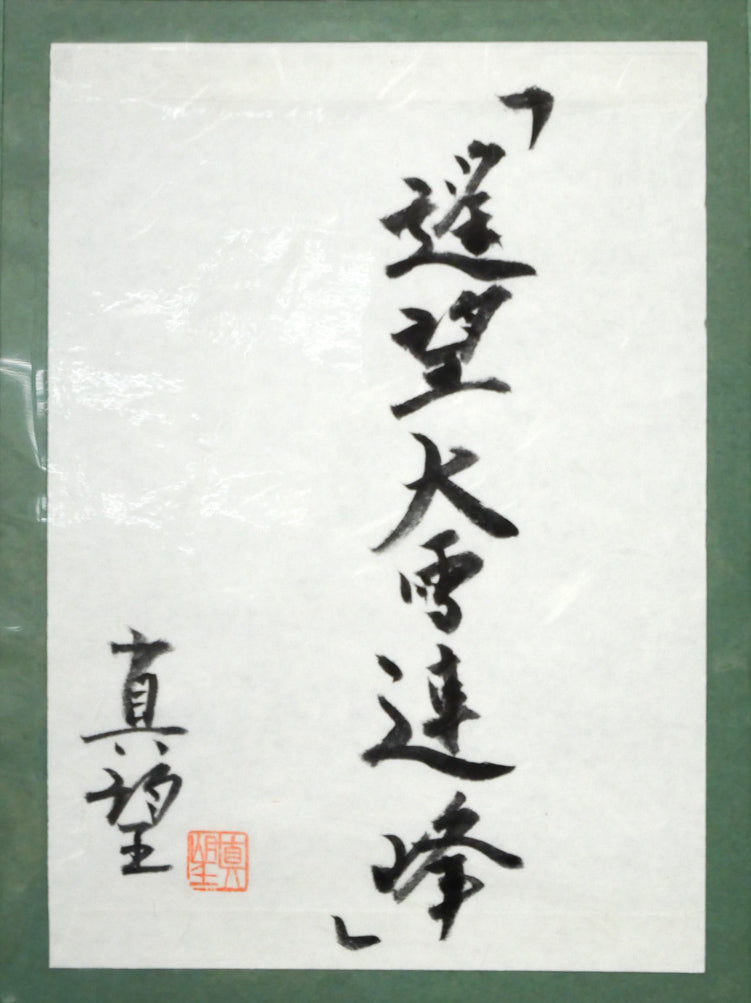 「遥望大雪連峰」
真望
真望